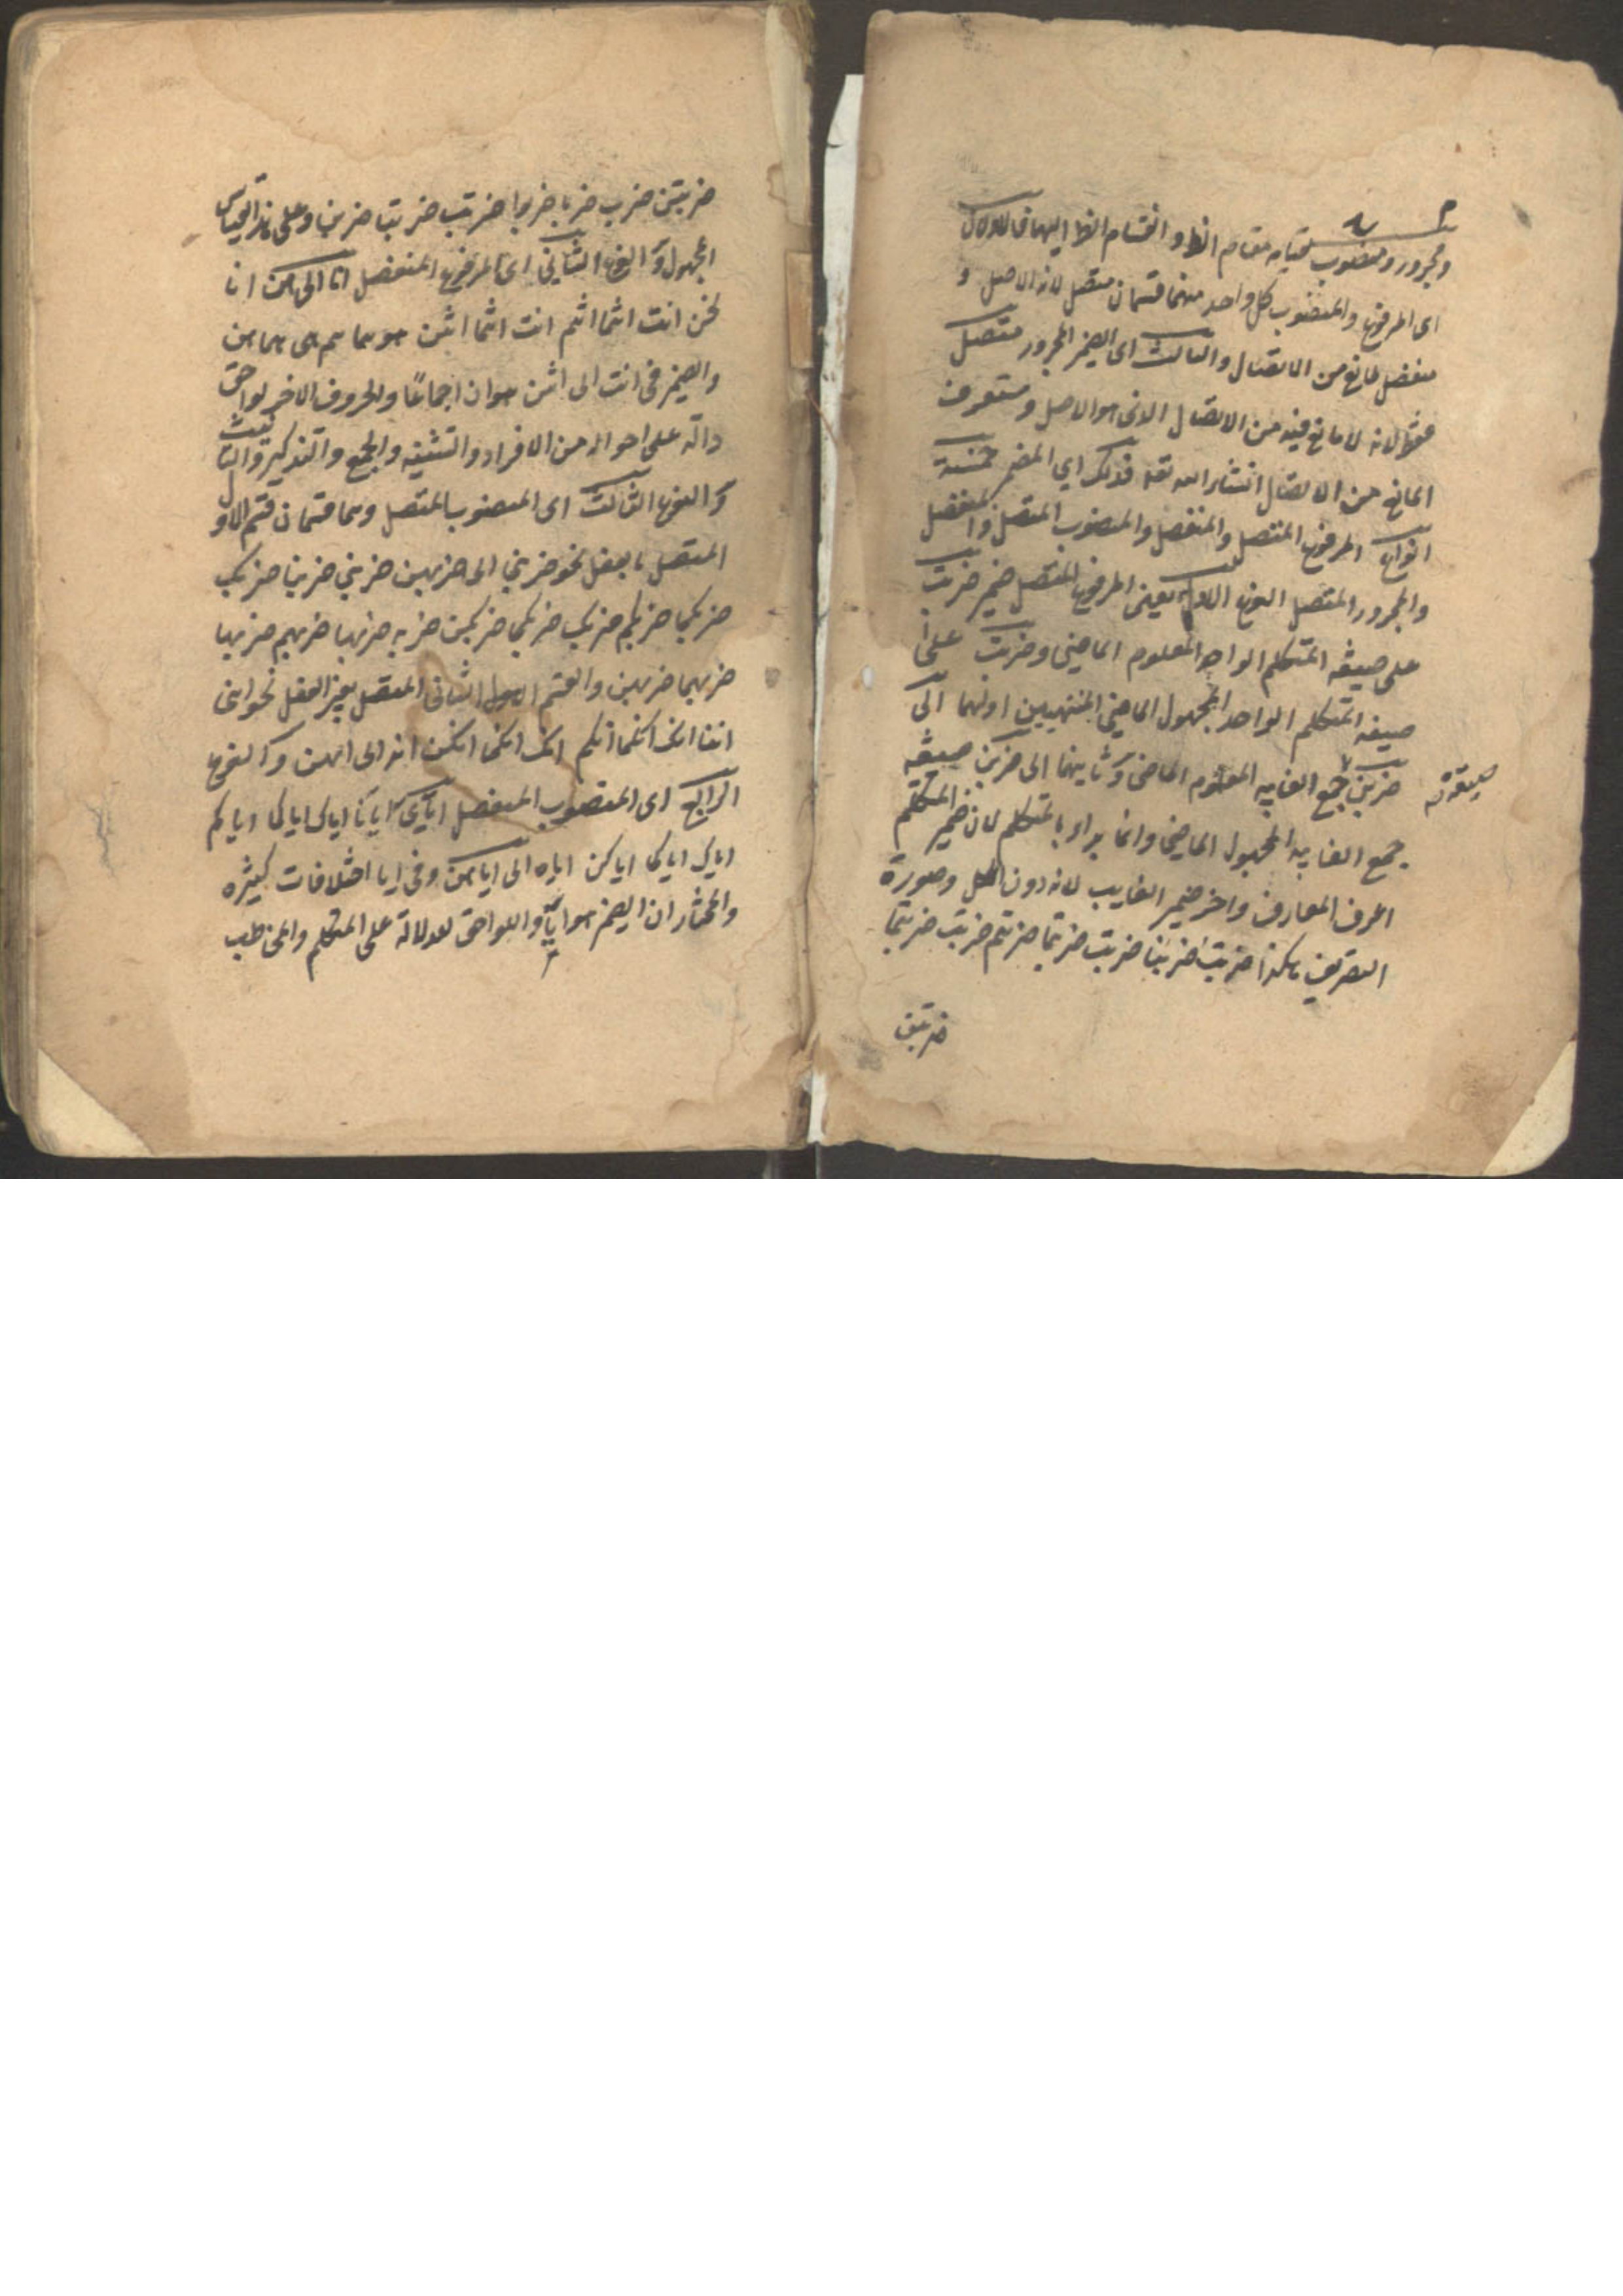 ومجرور ومنصوب لقيامه مقام الظ وانقسام الظ اليها فالاولان
اى المرفوع والمنصوب كل واحد منهما قسمان متصل لانه الاصل و
منفصل لمانع من الاتصال والثالث اى الضمير المجرور متصل
فقط لانه لا مانع فيه من الاتصال الذى هو الاصل وستعرف
المانع من الاتصال انشاء الله تعه فذلك اي المضمر خمسة
انواع المرفوع المتصل والمنفصل والمنصوب المتصل والمنفصل
والمجرور المتصل النوع الاول يعنى المرفوع المتصل ضمير ضربت
على صيغة المتكلم الواحد المعلوم الماضى وضربت على
صيغة المتكلم الواحد المجهول الماضى المنتهيين اولهما الى
ضربن جمع الغايبه المعلوم الماضى وثانيهما الى ضربن صيغة
جمع الغايبه المجهول الماضى وانما بداء بالمتكلم لان ضمير المتكلم
اعرف المعارف واخر ضمير الغايب لانه دون الكل وصورة
التصريف هكذا ضربت ضربنا ضربت ضربتما ضربتم ضربت ضربتما
ضربتن
ضربتن ضرب ضربا ضربوا ضربت ضربتا ضربن وعلى هذا القياس
المجهول والنوع الثانى اى المرفوع المنفصل انا الى هن انا
نحن انت انتما انتم انت انتما انتن هو هما هم هى هما هن
والضمير فى انت الى انتن هو ان اجماعًا والحروف الاخر لواحق
دالة على احواله من الافراد والتثنيه والجمع والتذكير والتانيث
والنوع الثالث اى المنصوب المتصل وهما قسمان قسم الاول
المتصل بالفعل نحو ضربنى الى ضربهن ضربنى ضربنا ضربك
ضربكما ضربكم ضربك ضربكما ضربكن ضربه ضربهما ضربهم ضربها
ضربهما ضربهن والقسم الثانى المتصل بغير الفعل نحو اننى
اننا انك انكما انكم انك انكما انكن انه الى انهن والنوع
الرابع اى المنصوب المنفصل اياى ايانا اياك اياكما اياكم
اياك اياكما اياكن اياه الى اياهن وفى ايا اختلافات كثيره
والمختار ان الضمير هو ايا واللواحق لدلالة على المتكلم والمخاطب